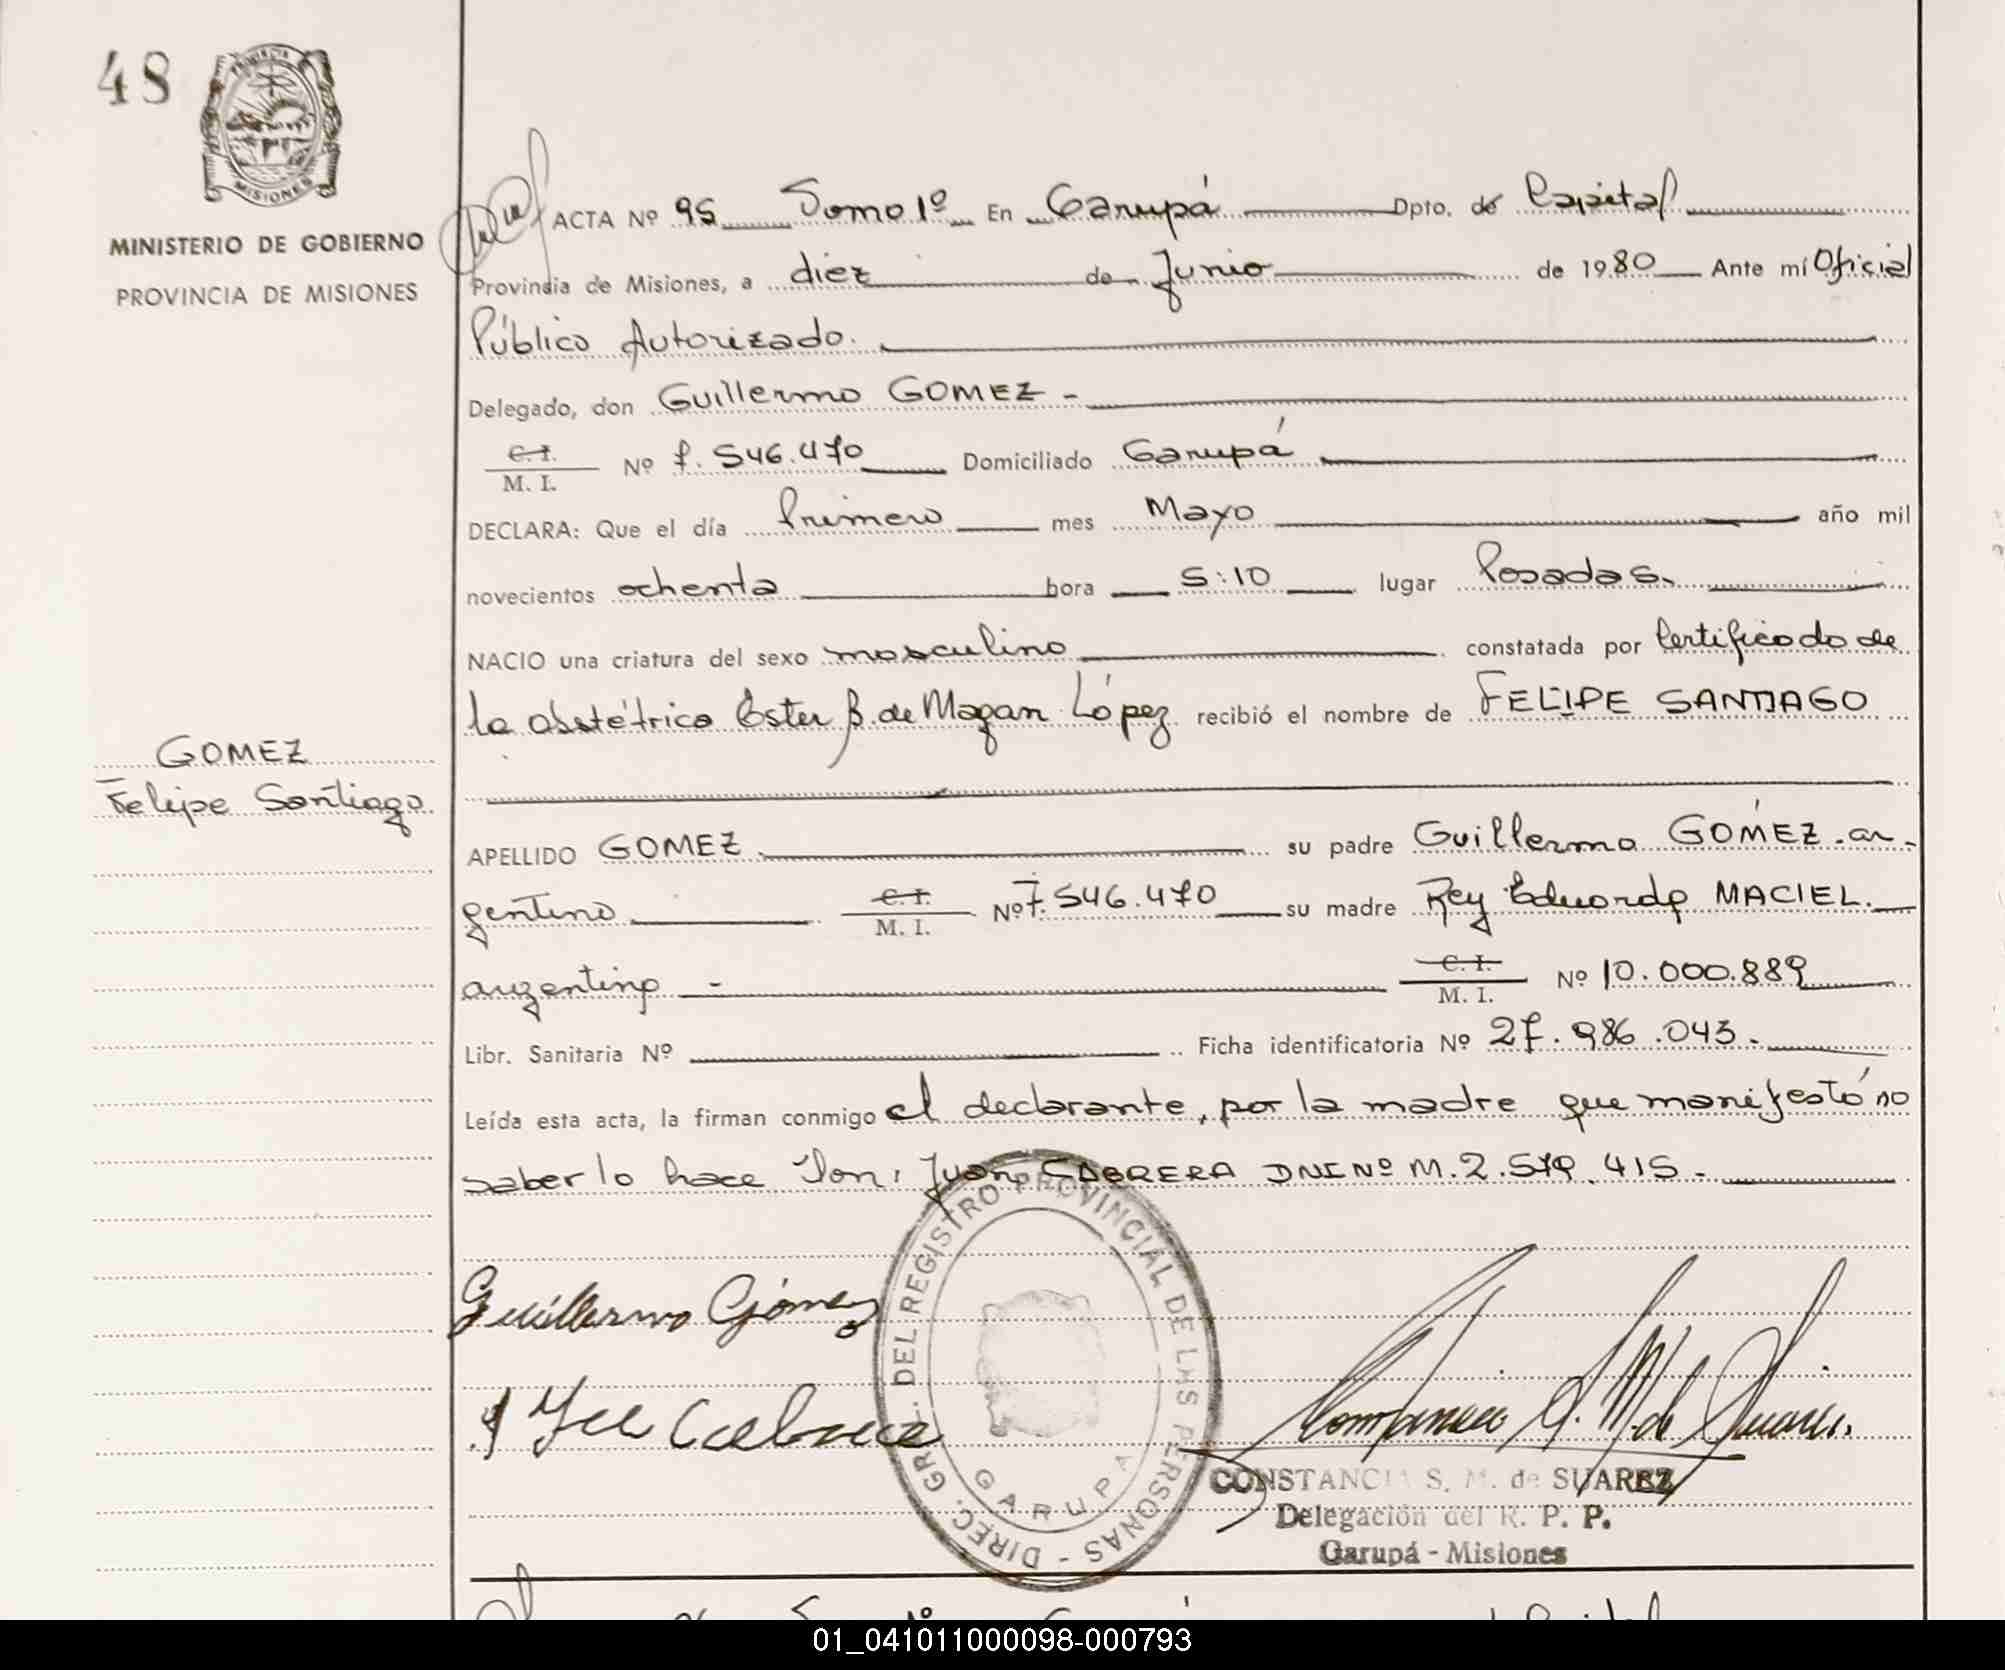 48
PROVINCIA
MISIONES
MINISTERIO DE GOBIERNO
PROVINCIA DE MISIONES
ACTA Nº 95 Tomo 1º En Garupá Dpto. de Capital
Provincia de Misiones, a diez de Junio de 1980 Ante mí Oficial
Público Autorizado.
Delegado, don Guillermo GOMEZ -
C. I.
M. I. Nº 7.546.470 Domiciliado Garupá
DECLARA: Que el día Primero mes Mayo año mil
novecientos ochenta hora 5:10 lugar Posadas.
NACIO una criatura del sexo masculino constatada por Certificado de
la obstétrica Ester B. de Magan López recibió el nombre de FELIPE SANTIAGO
GOMEZ
Felipe Santiago.
APELLIDO GOMEZ su padre Guillermo GOMEZ. ar-
gentino C. I.
M. I. Nº 7.546.470 su madre Rey Eduarda MACIEL.
argentina - C. I.
M. I. Nº 10.000.889
Libr. Sanitaria Nº Ficha identificatoria Nº 27.986.043.
Leída esta acta, la firman conmigo el declarante, por la madre que manifestó no
saber lo hace Don: Juan CABRERA DNI Nº M.2.579.415.-
Guillermo Gómez
DIREC. GR. DEL REGISTRO PROVINCIAL DE LAS PERSONAS -
GARUPA
CONSTANCIA S. M. de SUAREZ
Delegación del R. P. P.
Garupá - Misiones
01_041011000098-000793